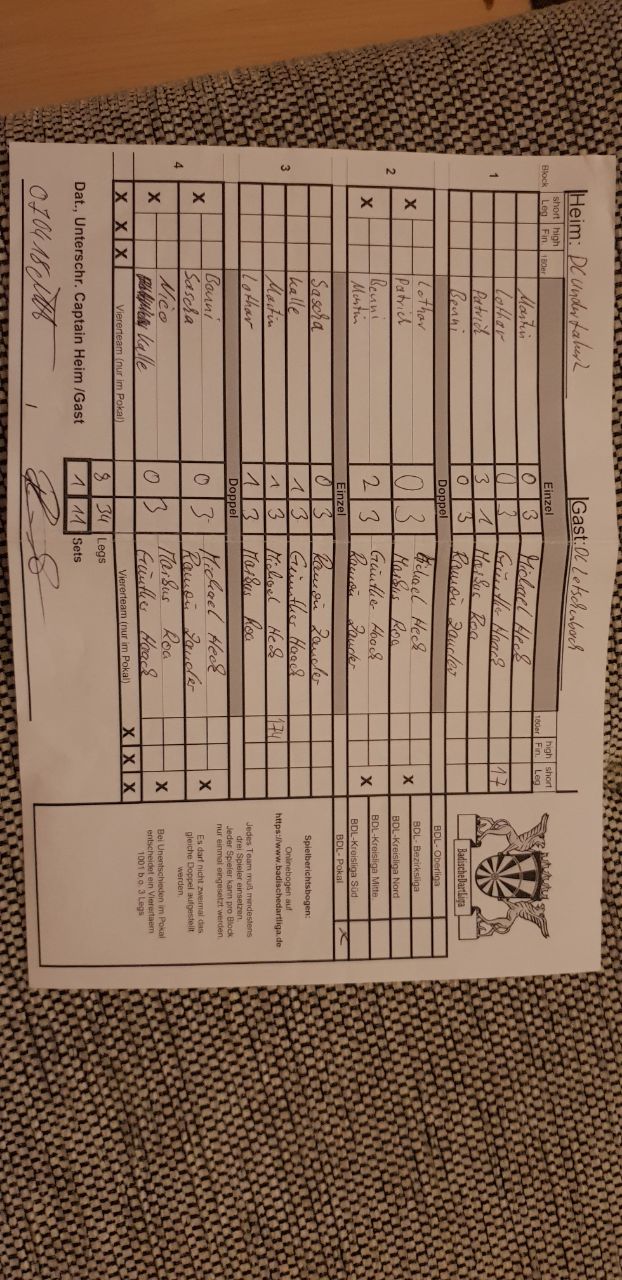 Heim: DC Undertaker 2 Gast: DC Letschebach
Block short Leg high Fin. 180er Einzel 180er high Fin. short Leg
1 Martin 0 3 Michael Heck
Lothar 0 3 Günther Haack 17
Patrick 3 1 Markus Roa
Benni 0 3 Ramon Zaucker
Doppel
2 X Lothar 0 3 Michael Heck X
Patrick Markus Roa
X Benni 2 3 Günther Haack X
Martin Ramon Zaucker
Einzel
3 Sascha 0 3 Ramon Zaucker
Kalle 1 3 Günther Haack
Martin 1 3 Michael Heck 174
Lothar 1 3 Markus Roa
Doppel
4 X Benni 0 3 Michael Heck X
Sascha Ramon Zaucker
X Nico 0 3 Markus Roa X
Kalle Günther Haack
X X X Viererteam (nur im Pokal) Viererteam (nur im Pokal) X X X
8 34 Legs
Dat., Unterschr. Captain Heim /Gast 1 11 Sets
07.04.18
Badische Dartliga
BDL- Oberliga
BDL- Bezirksliga
BDL-Kreisliga Nord
BDL-Kreisliga Mitte
BDL-Kreisliga Süd
BDL- Pokal X
Spielberichtsbogen:
Onlinebogen auf
https://www.badischedartliga.de
Jedes Team muß mindestens
drei Spieler einsetzen.
Jeder Spieler kann pro Block
nur einmal eingesetzt werden.
Es darf nicht zweimal das
gleiche Doppel aufgestellt
werden.
Bei Unentschieden im Pokal
entscheidet ein Viererteam
1001 b.o. 3 Legs